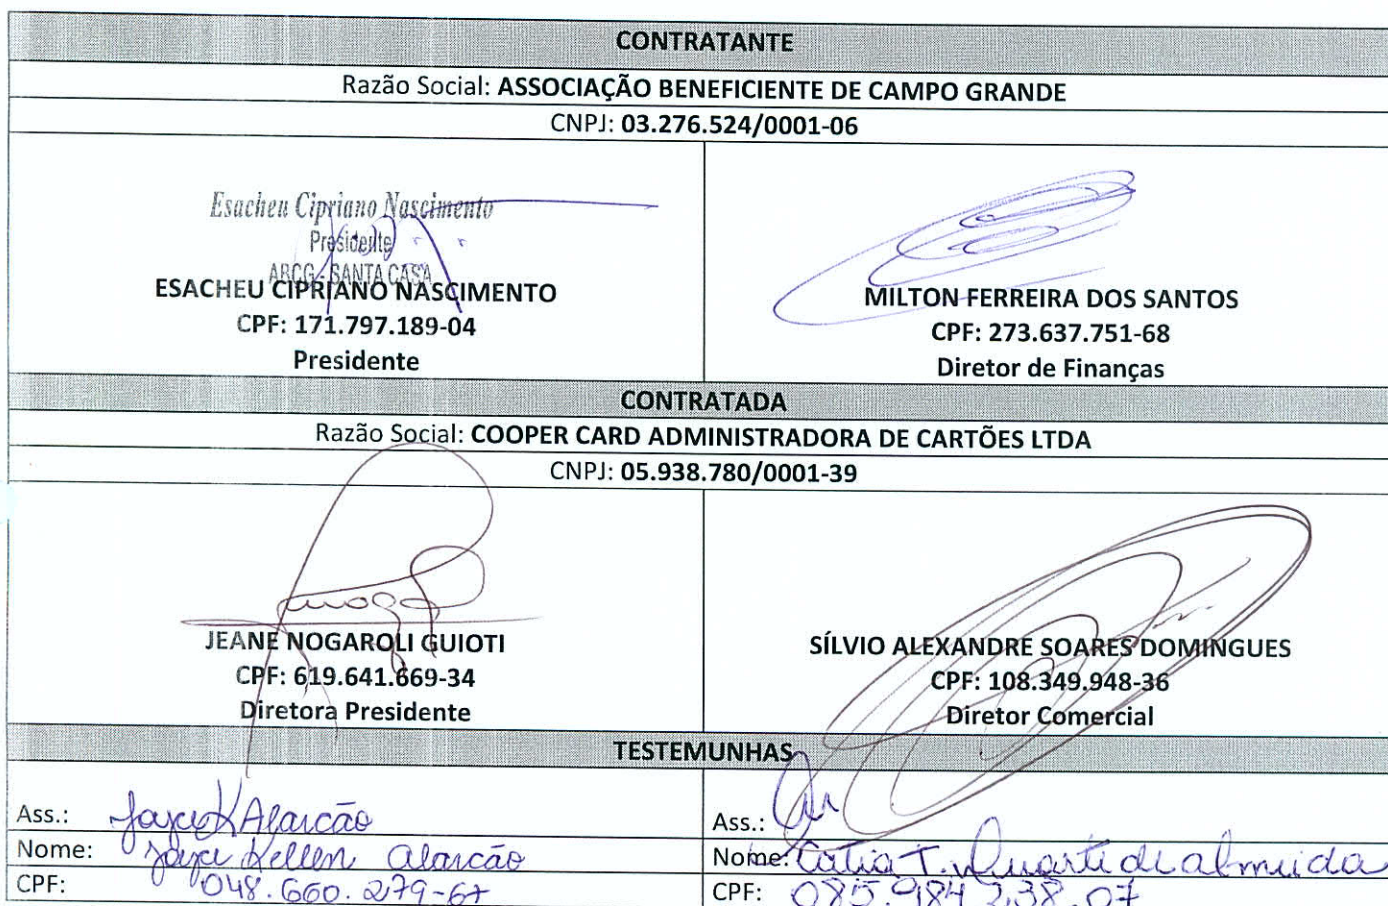 CONTRATANTE
Razão Social: ASSOCIAÇÃO BENEFICIENTE DE CAMPO GRANDE
CNPJ: 03.276.524/0001-06
Esacheu Cipriano Nascimento
Presidente
ABCG - SANTA CASA
ESACHEU CIPRIANO NASCIMENTO
CPF: 171.797.189-04
Presidente
MILTON FERREIRA DOS SANTOS
CPF: 273.637.751-68
Diretor de Finanças
CONTRATADA
Razão Social: COOPER CARD ADMINISTRADORA DE CARTÕES LTDA
CNPJ: 05.938.780/0001-39
JEANE NOGAROLI GUIOTI
CPF: 619.641.669-34
Diretora Presidente
SÍLVIO ALEXANDRE SOARES DOMINGUES
CPF: 108.349.948-36
Diretor Comercial
TESTEMUNHAS
Ass.: Joyce K Alarcão
Nome: Joyce Kellen Alarcão
CPF: 048.660.279-67
Ass.:
Nome: Catia T. Duarte de Almeida
CPF: 085.984.238.07